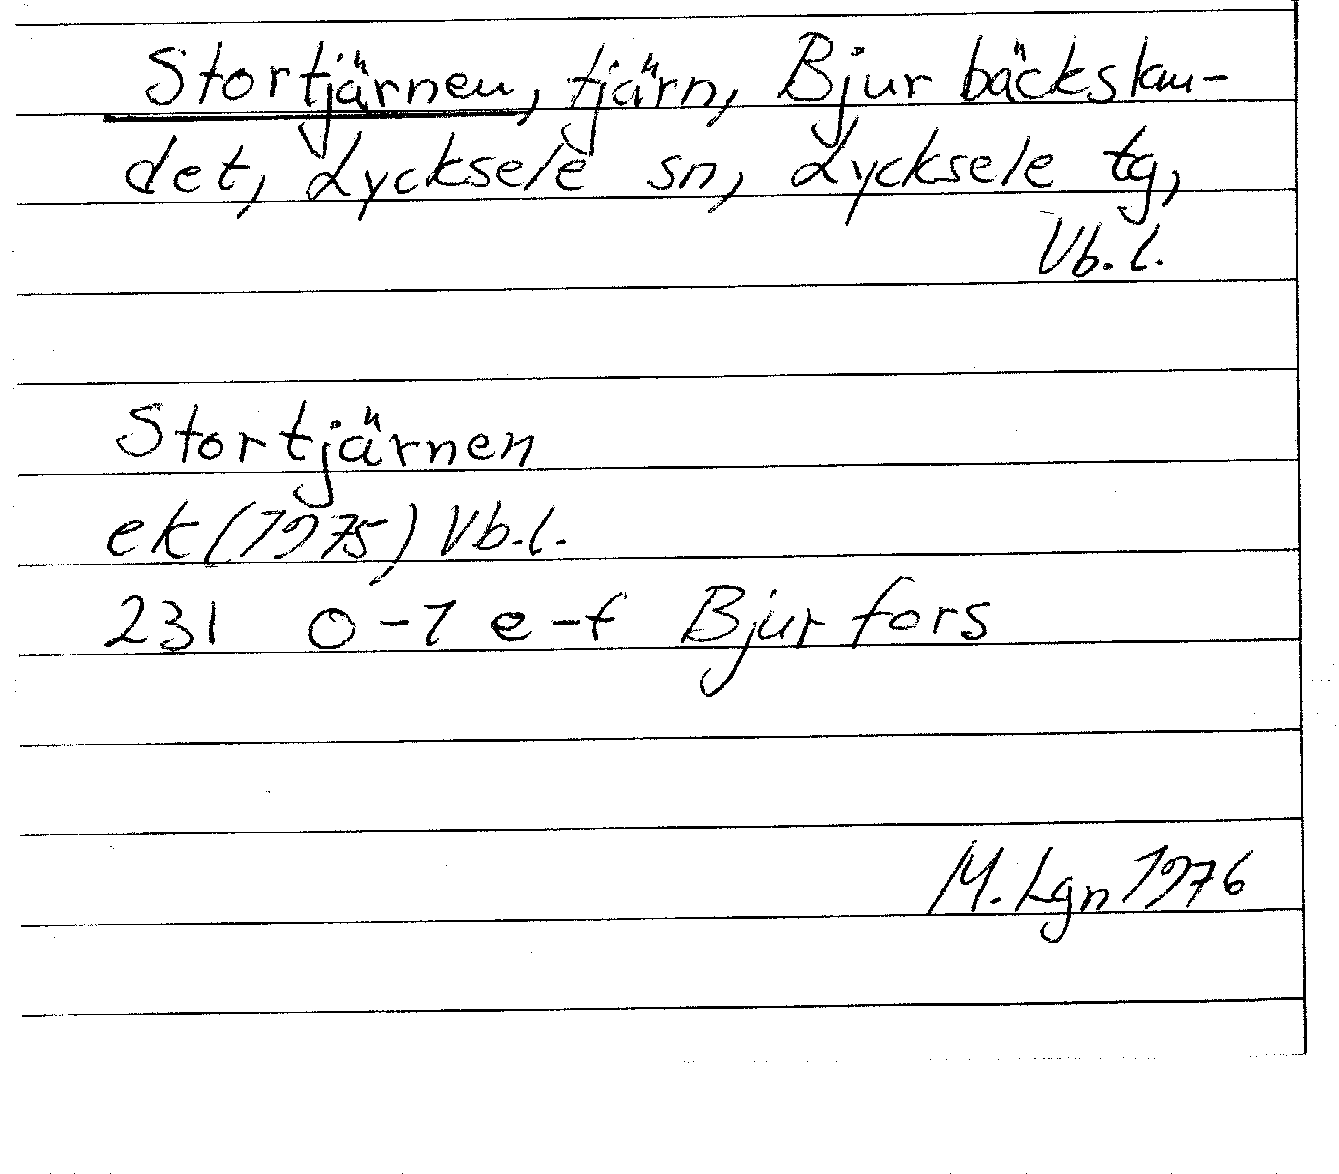 Stortjärnen, tjärn, Bjurbäckslan-
det, Lycksele sn, Lycksele tg,
Vb.l.
Stortjärnen
ek (1975) Vb.l.
231 0-1 e-f Bjurfors
M. Lgn 1976